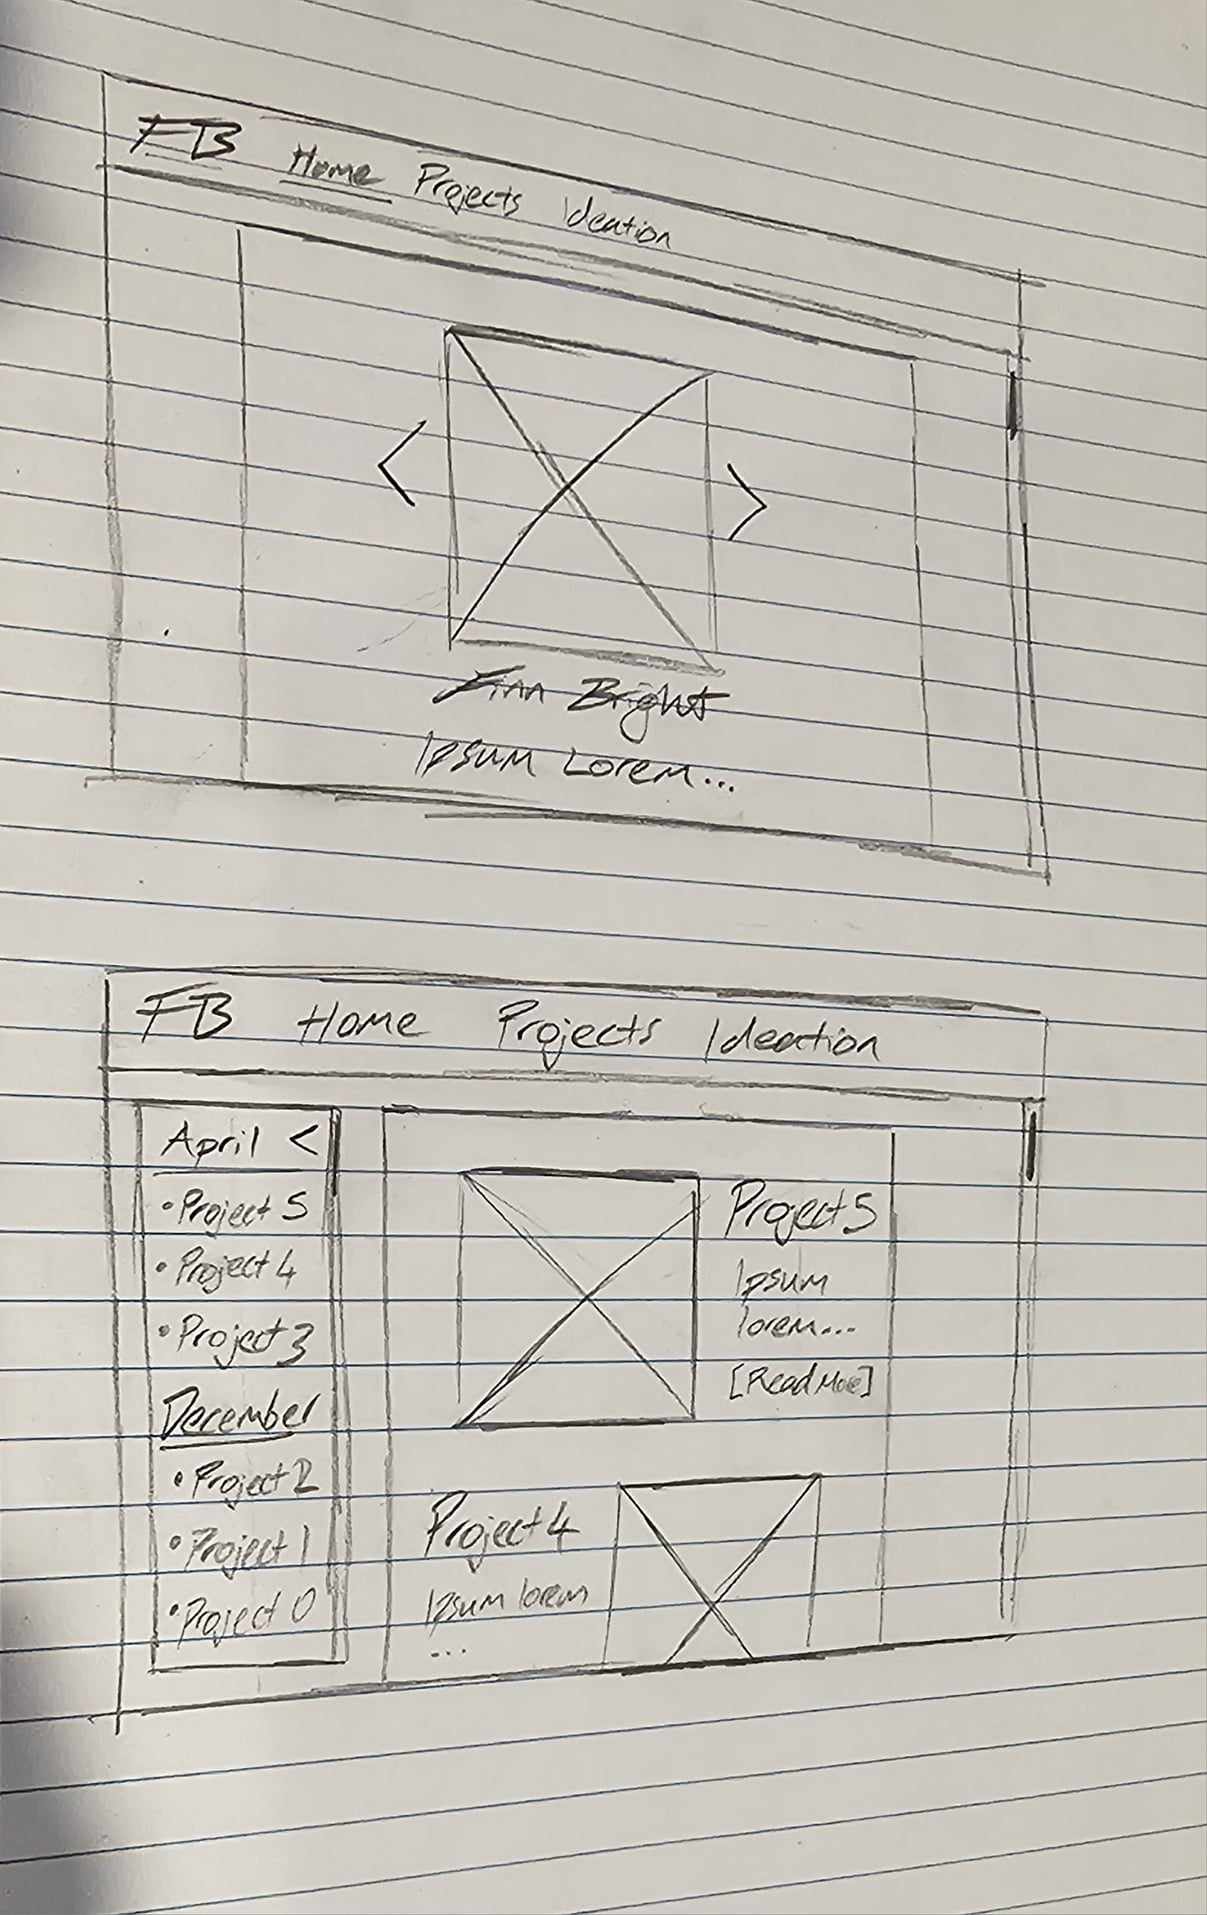 FB Home Projects Ideation
<
>
Finn Bright
Ipsum Lorem...
FB Home Projects Ideation
April <
• Project 5
• Project 4
• Project 3
December
• Project 2
• Project 1
• Project 0
Project 5
Ipsum
lorem...
[Read More]
Project 4
Ipsum lorem
...